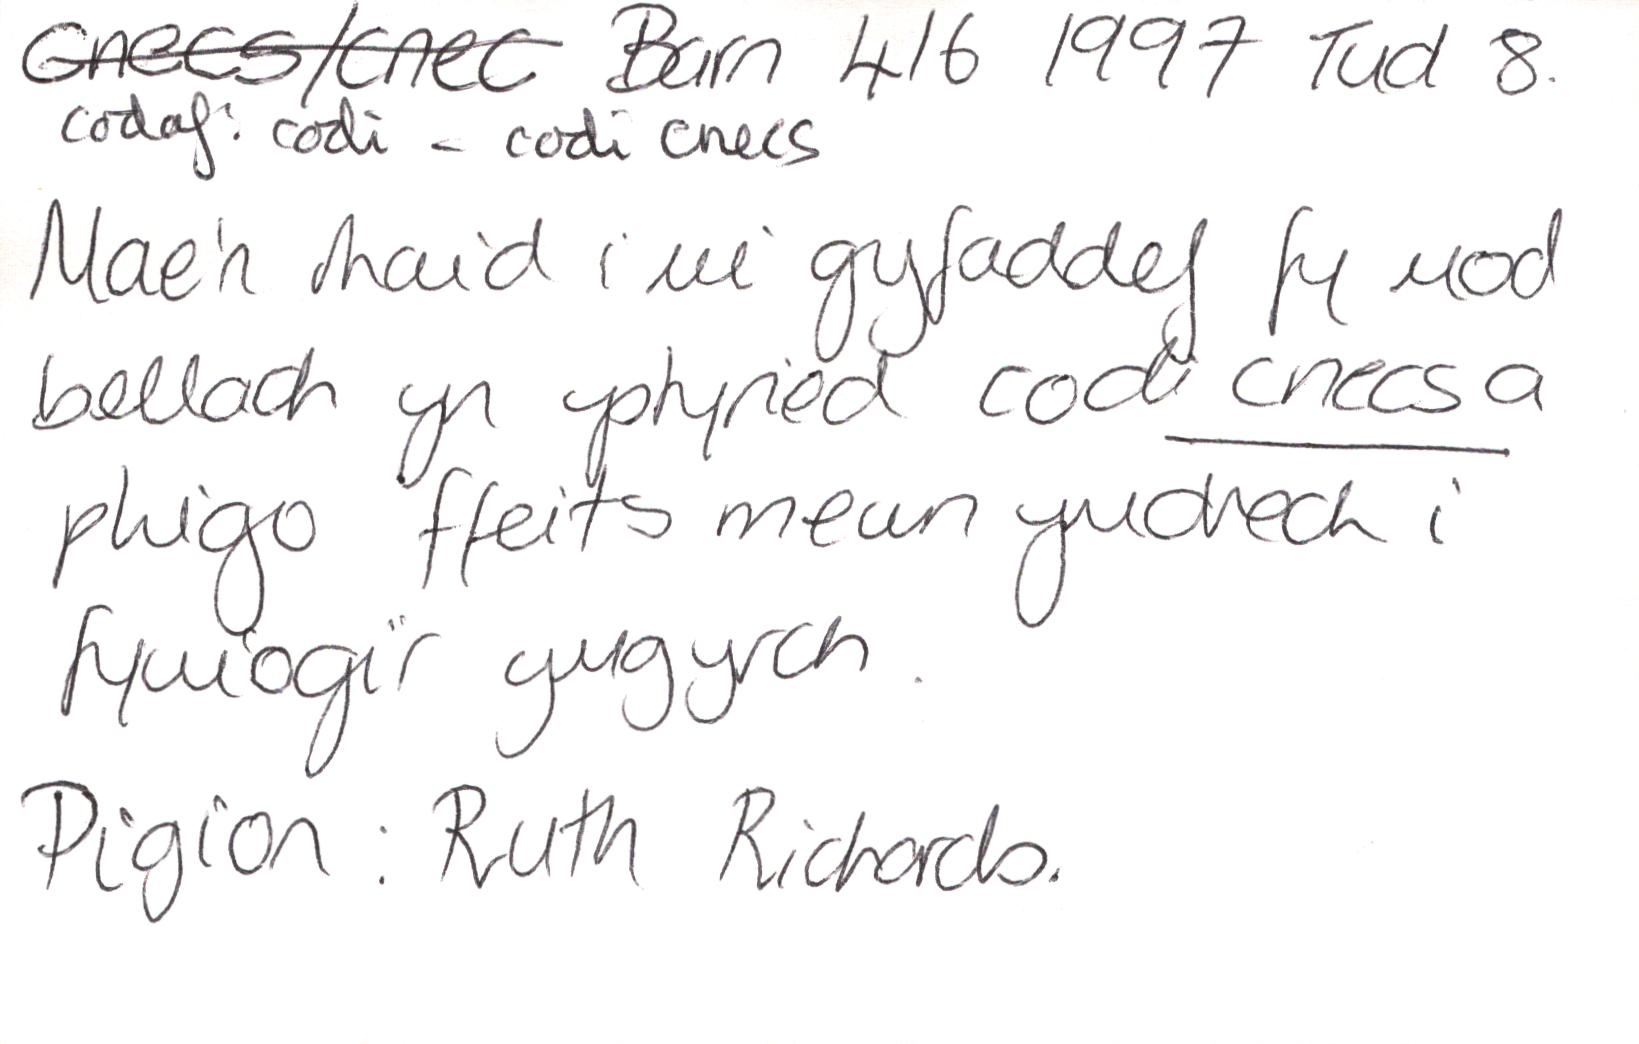 CNECS/CNEC Barn 416 1997 Tud 8.
codaf: codi - codi cnecs
Mae'n rhaid i mi gyfaddef fy mod
bellach yn ystyried codi cnecs a
phigo ffeits mewn ymdrech i
fywiogi'r ymgyrch.
Pigion: Ruth Richards.